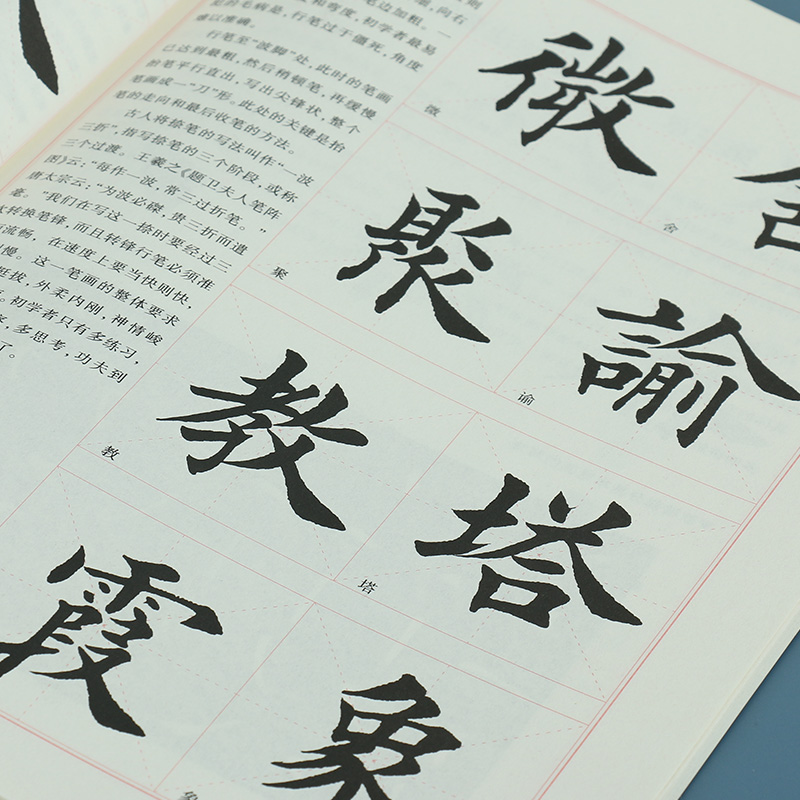 则
向右
笔边加粗。一
和弯度，初学者最易
的毛病是，行笔过于僵死，角度
难以准确。
行笔至“波脚”处，此时的笔画
已达到最粗，然后稍顿笔，再缓慢
抬笔平行直出，写出尖锋状，整个
笔画成一“刀”形。此处的关键是抬
笔的走向和最后收笔的方法。
古人将捺笔的写法叫作“一波
三折”，指写捺笔的三个阶段，或称
三个过渡。王羲之《题卫夫人笔阵
图》云：“每作一波，常三过折笔。”
唐太宗云：“为波必磔，贵三折而遣
毫。”我们在写这一捺时要经过三
次转换笔锋，而且转锋行笔必须准
流畅，在速度上要当快则快，
慢。这一笔画的整体要求
挺拔，外柔内刚，神情峻
。初学者只有多练习，
，多思考，功夫到
了。
微
微
舍
聚
聚
諭
谕
教
教
塔
塔
霞
象
象